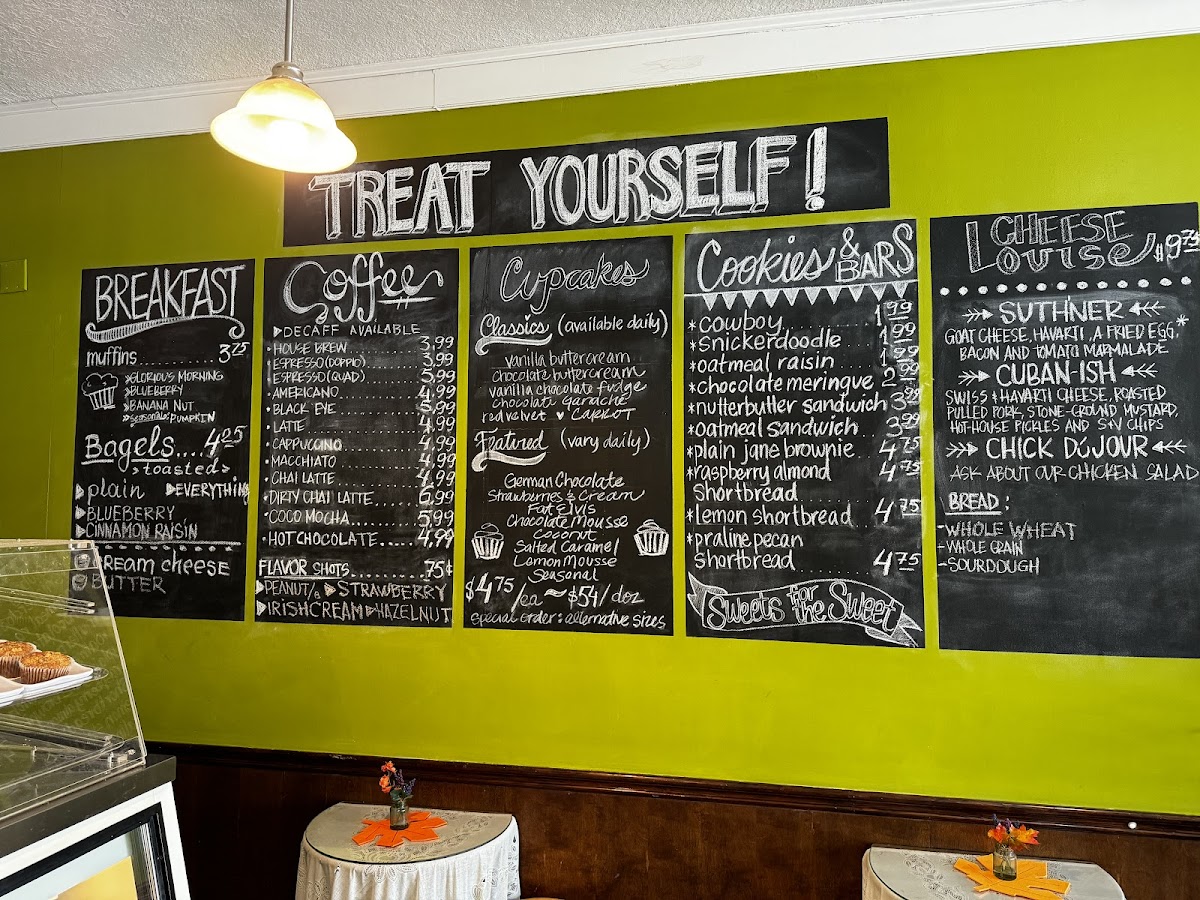 TREAT YOURSELF!
BREAKFAST
muffins.......... 3.75
GLORIOUS MORNING
BLUEBERRY
BANANA NUT
PUMPKIN
Bagels.... 4.05
>toasted>
plain EVERYTHING
BLUEBERRY
CINNAMON RAISIN
CREAM cheese
BUTTER
Coffee
DECAFF AVAILABLE
HOUSE BREW 3.99
ESPRESSO (DOPPIO) 3.99
ESPRESSO (QUAD) 5.99
AMERICANO 4.99
BLACK EYE 5.99
LATTE 4.99
CAPPUCCINO 4.99
MACCHIATO 4.99
CHAI LATTE 4.99
DIRTY CHAI LATTE 6.99
COCO MOCHA 5.99
HOT CHOCOLATE 4.99
FLAVOR SHOTS 75¢
PEANUT/B STRAWBERRY
IRISH CREAM HAZELNUT
Cupcakes
Classics (available daily)
vanilla buttercream
chocolate buttercream
vanilla chocolate fudge
chocolate ganache
red velvet ♥ CARROT
Featured (vary daily)
German Chocolate
Strawberries & Cream
Fat Elvis
Chocolate Mousse
Coconut
Salted Caramel
Lemon Mousse
Seasonal
$4.75/ea ~ $54/doz
special order: alternative sizes
Cookies & BARS
*cowboy 1.99
*snickerdoodle 1.99
*oatmeal raisin 1.99
*chocolate meringue 2.99
*nutterbutter sandwich 3.99
*oatmeal sandwich 3.99
*plain jane brownie 4.75
*raspberry almond 4.75
shortbread
*lemon shortbread 4.75
*praline pecan
shortbread 4.75
Sweets for the Sweet
CHEESE
Louise $9.75
SUTHNER
GOAT CHEESE, HAVARTI, A FRIED EGG,*
BACON AND TOMATO MARMALADE
CUBAN-ISH
SWISS & HAVARTI CHEESE, ROASTED
PULLED PORK, STONE-GROUND MUSTARD,
HOT-HOUSE PICKLES AND S+V CHIPS
CHICK DÚJOUR
ASK ABOUT OUR CHICKEN SALAD
BREAD:
-WHOLE WHEAT
-WHOLE GRAIN
-SOURDOUGH